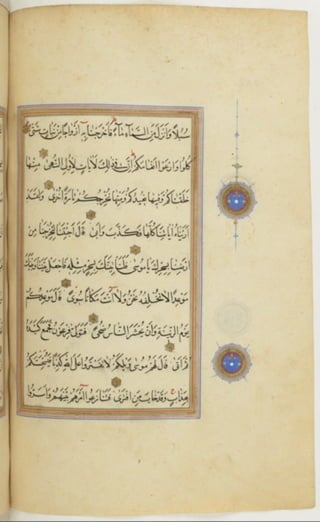 سُبُلًا وَأَنزَلَ مِنَ السَّمَاءِ مَاءً فَأَخْرَجْنَا بِهِ أَزْوَاجًا مِن نَّبَاتٍ شَتَّى
كُلُوا وَارْعَوْا أَنْعَامَكُمْ إِنَّ فِي ذَلِكَ لَآيَاتٍ لِأُولِي النُّهَى مِنْهَا
خَلَقْنَاكُمْ وَفِيهَا نُعِيدُكُمْ وَمِنْهَا نُخْرِجُكُمْ تَارَةً أُخْرَى وَلَقَدْ
أَرَيْنَاهُ آيَاتِنَا كُلَّهَا فَكَذَّبَ وَأَبَى قَالَ أَجِئْتَنَا لِتُخْرِجَنَا مِنْ
أَرْضِنَا بِسِحْرِكَ يَا مُوسَى فَلَنَأْتِيَنَّكَ بِسِحْرٍ مِثْلِهِ فَاجْعَلْ بَيْنَنَا وَبَيْنَكَ
مَوْعِدًا لَا نُخْلِفُهُ نَحْنُ وَلَا أَنْتَ مَكَانًا سُوًى قَالَ مَوْعِدُكُمْ
يَوْمُ الزِّينَةِ وَأَنْ يُحْشَرَ النَّاسُ ضُحًى فَتَوَلَّى فِرْعَوْنُ فَجَمَعَ كَيْدَهُ
ثُمَّ أَتَى قَالَ لَهُمْ مُوسَى وَيْلَكُمْ لَا تَفْتَرُوا عَلَى اللَّهِ كَذِبًا فَيُسْحِتَكُمْ
بِعَذَابٍ وَقَدْ خَابَ مَنِ افْتَرَى فَتَنَازَعُوا أَمْرَهُمْ بَيْنَهُمْ وَأَسَرُّوا